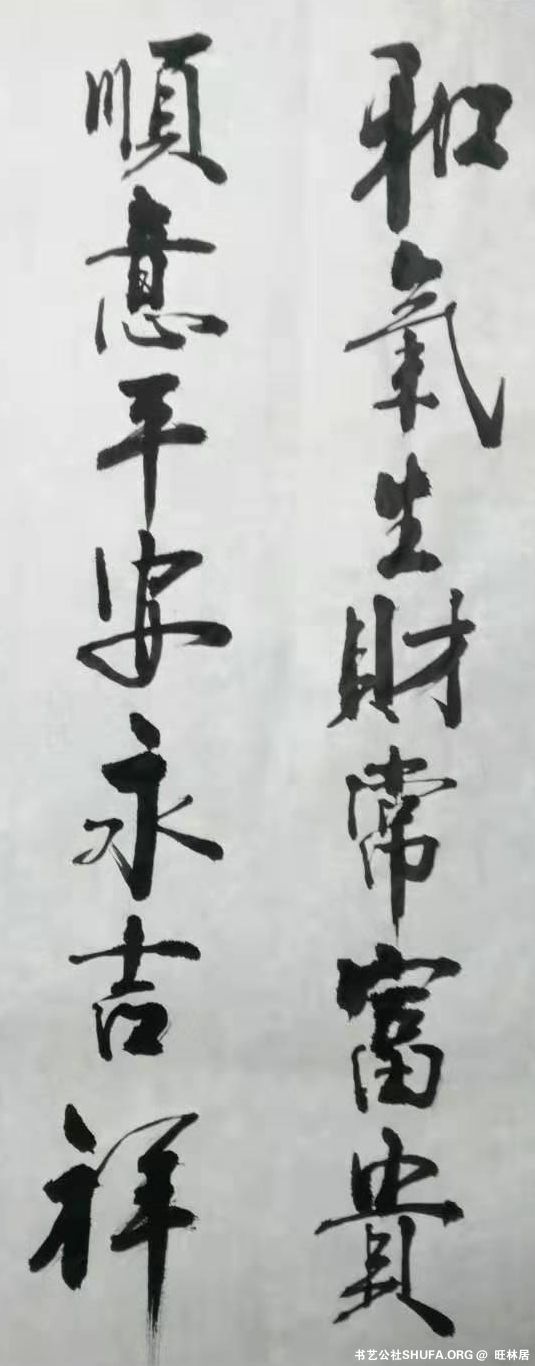 和氣生財常富貴
順意平安永吉祥
书艺公社SHUFA.ORG @ 旺林居